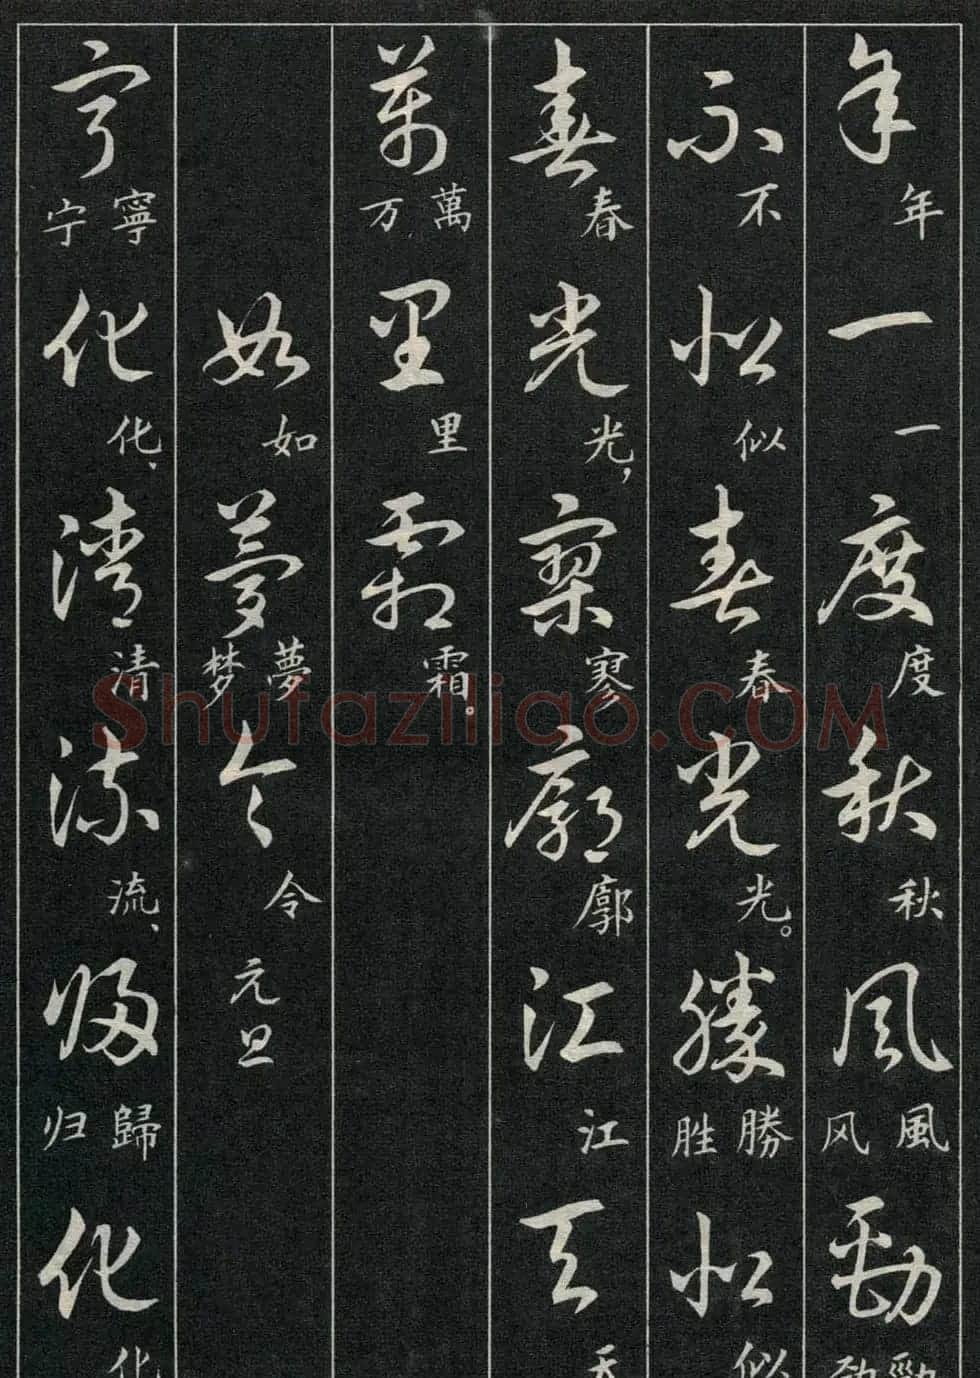 年年一一度度秋秋風風风勁勁劲
不不似似春春光光。勝勝胜似似
春春光光，寥寥廓廓江江天天
萬萬万里里霜霜。
如如夢夢梦令令元旦
寧寧宁化化、清清流流、歸歸归化化
Shufaziliao.COM